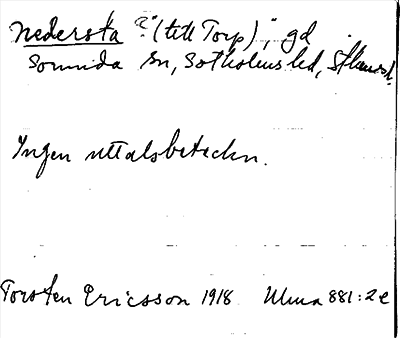 Nedersta ?"(till Torp)", gd
Sorunda sn, Sotholms hd, Sthlms l.
Ingen uttalsbeteckn.
Torsten Ericsson 1918 Ulma 881:2e